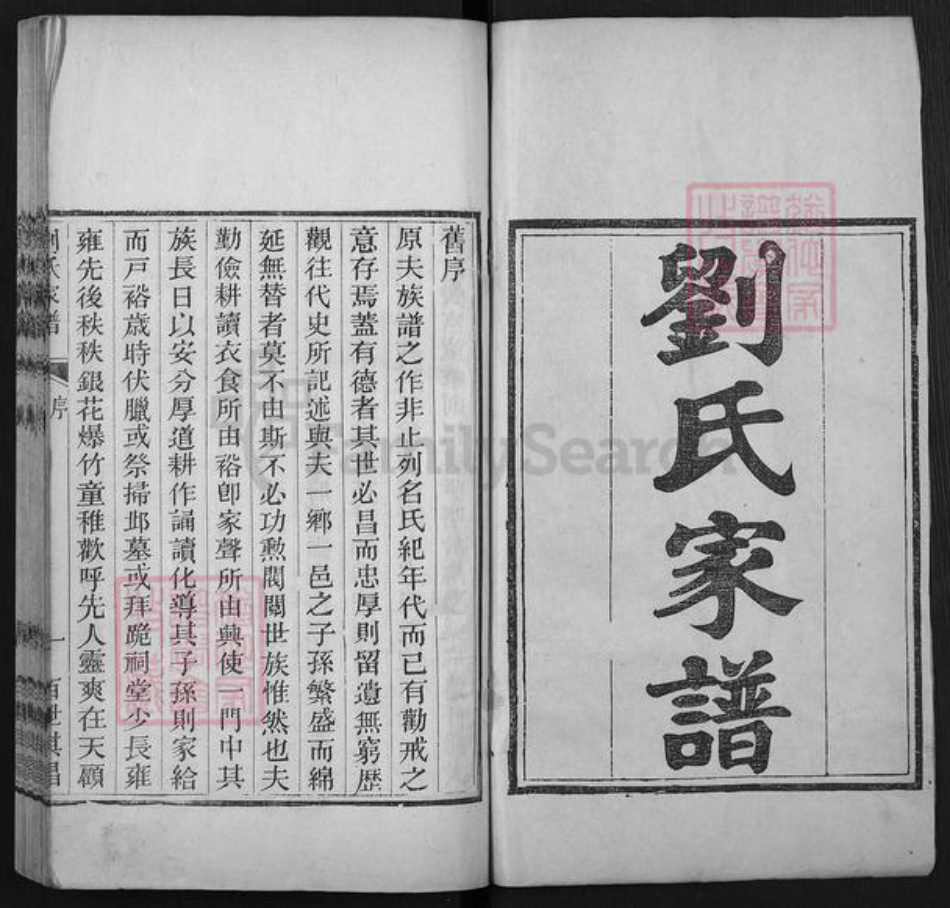 劉氏家譜
舊序
原夫族譜之作非止列名氏紀年代而已有勸戒之
意存焉蓋有德者其世必昌而忠厚則留遺無窮歷
觀往代史所記述與夫一鄉一邑之子孫繁盛而綿
延無替者莫不由斯不必功勲閥閱世族惟然也夫
勤儉耕讀衣食所由裕卽家聲所由興使一門中其
族長日以安分厚道耕作誦讀化導其子孫則家給
而戸裕歲時伏臘或祭掃邱墓或拜跪祠堂少長雍
雍先後秩秩銀花爆竹童稚歡呼先人靈爽在天顧
劉氏家譜 序 一 百世其昌
FamilySearch